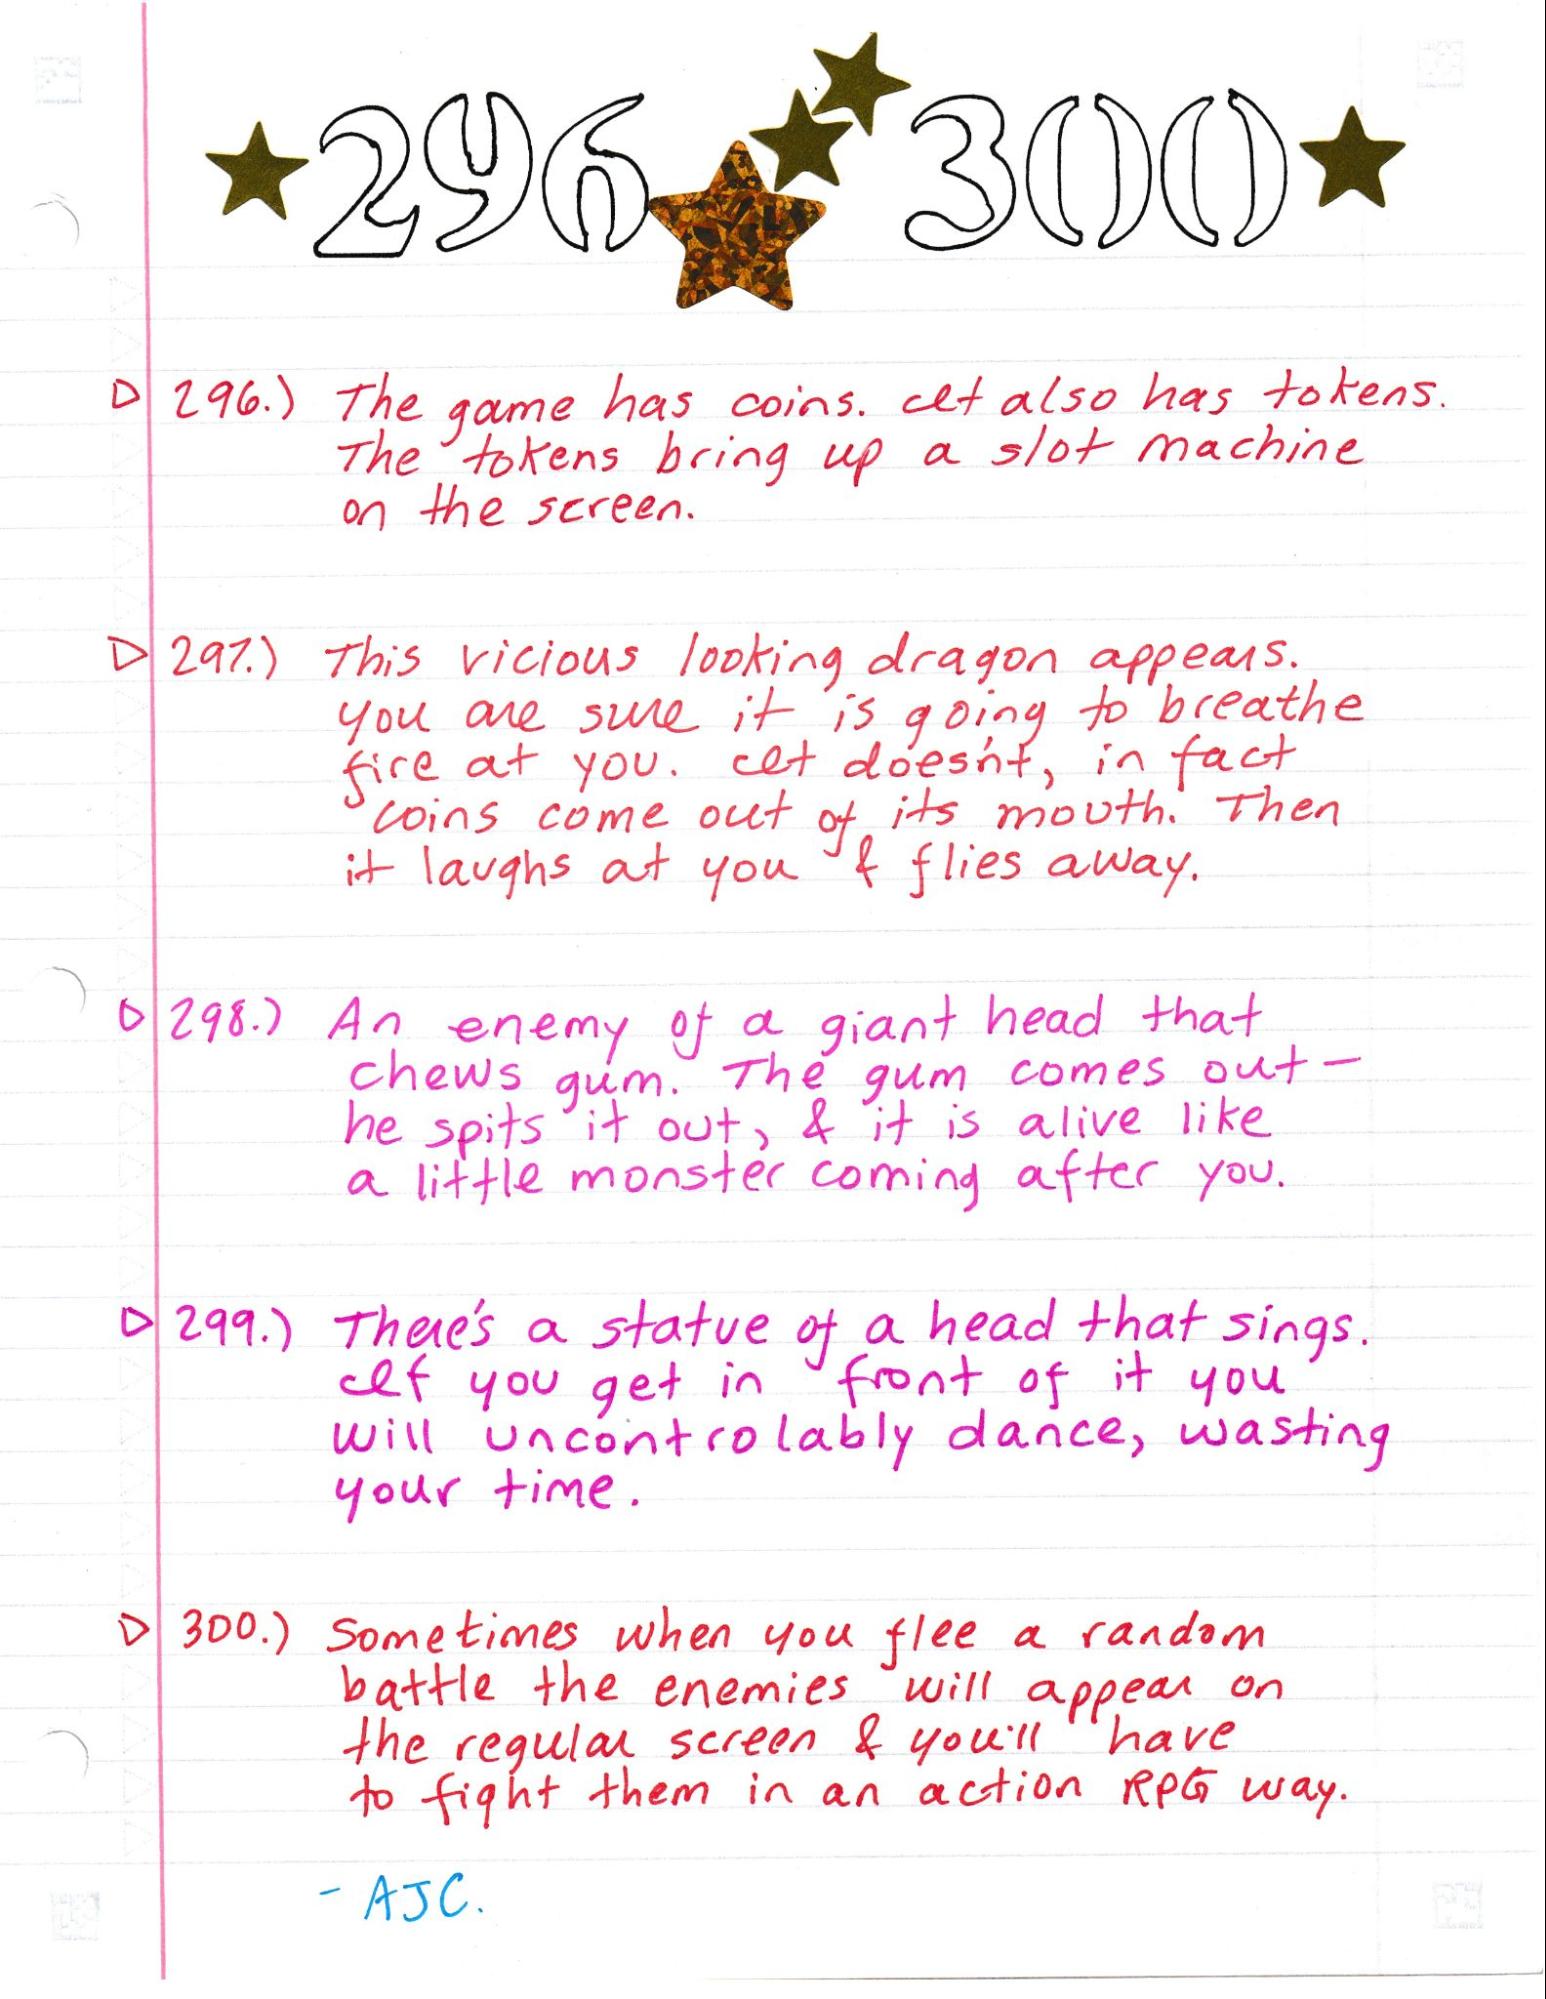 296 300
296.) The game has coins. It also has tokens.
The tokens bring up a slot machine
on the screen.
297.) This vicious looking dragon appears.
you are sure it is going to breathe
fire at you. It does'nt, in fact
coins come out of its mouth. Then
it laughs at you & flies away.
298.) An enemy of a giant head that
chews gum. The gum comes out -
he spits it out, & it is alive like
a little monster coming after you.
299.) There's a statue of a head that sings.
If you get in front of it you
will uncontrolably dance, wasting
your time.
300.) Sometimes when you flee a random
battle the enemies will appear on
the regular screen & you'll have
to fight them in an action RPG way.
- AJC.